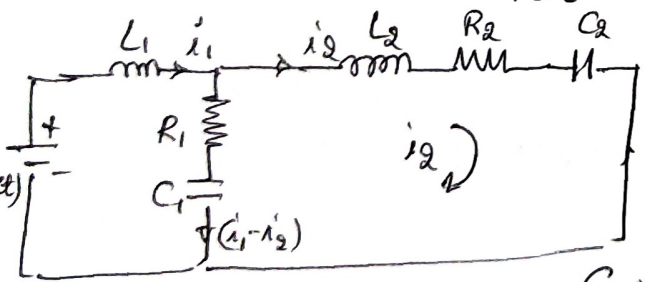 L1 i1 i2 L2 R2 C2
+
R1
i2
-
t)
C1
(i1-i2)